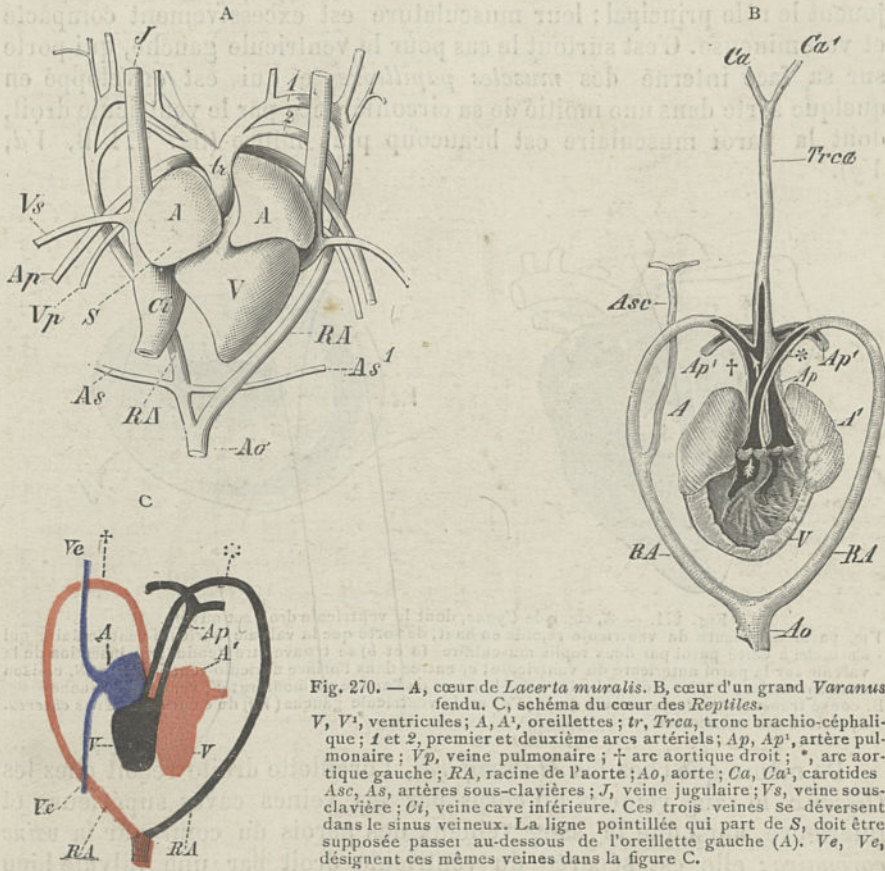 A
J
1
2
tr
A
A
Vs
Ap
Vp
S
Ci
V
RA
As
As¹
RA
Ao
B
Ca
Ca¹
Trca
Asc
Ap¹
†
*
Ap
Ap¹
A
A¹
V
RA
RA
Ao
C
Ve
†
*
A
Ap
A¹
V
V
Ve
RA
RA
Fig. 270. — A, cœur de Lacerta muralis. B, cœur d'un grand Varanus
fendu. C, schéma du cœur des Reptiles.
V, V¹, ventricules; A, A¹, oreillettes; tr, Trca, tronc brachio-céphali-
que; 1 et 2, premier et deuxième arcs artériels; Ap, Ap¹, artère pul-
monaire; Vp, veine pulmonaire; † arc aortique droit; *, arc aor-
tique gauche; RA, racine de l'aorte; Ao, aorte; Ca, Ca¹, carotides
Asc, As, artères sous-clavières; J, veine jugulaire; Vs, veine sous-
clavière; Ci, veine cave inférieure. Ces trois veines se déversent
dans le sinus veineux. La ligne pointillée qui part de S, doit être
supposée passer au-dessous de l'oreillette gauche (A). Ve, Ve,
désignent ces mêmes veines dans la figure C.